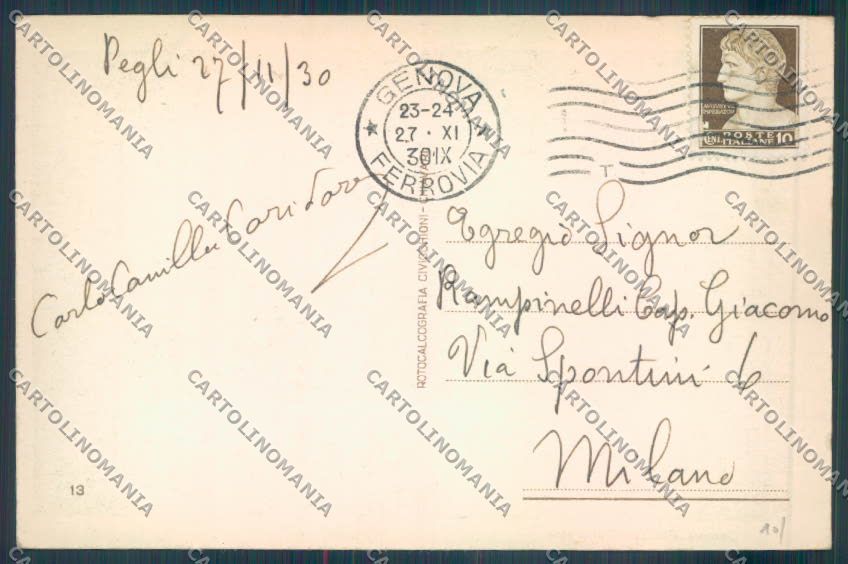 Pegli 27/11/30
GENOVA
23-24
27 · XI
30 IX
FERROVIA
POSTE
ITALIANE
CENT. 10
Carlo Camilla
ROTOCALCOGRAFIA CIVICCHIONI - CHIAVARI
Egregio Signor
Rampinelli Cap. Giacomo
Via Spontini 6
Milano
13
CARTOLINOMANIA